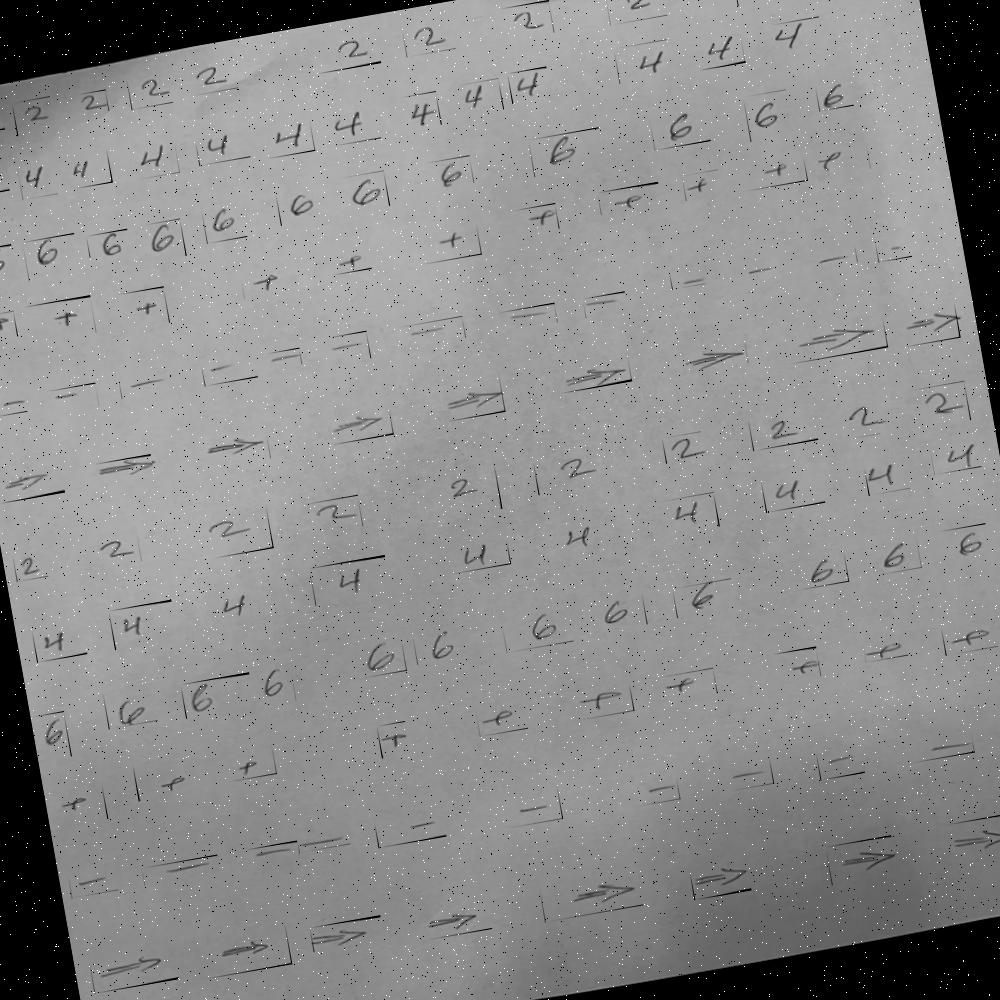 2 2 2 2 2 2 2 2
4 4 4 4 4 4 4 4 4 4 4 4
6 6 6 6 6 6 6 6 6 6 6
+ + + + + + + + + + +
− − − − − − − − − − − − −
⇒ ⇒ ⇒ ⇒ ⇒ ⇒ ⇒ ⇒ ⇒
2 2 2 2 2 2 2 2 2 2
4 4 4 4 4 4 4 4 4 4
6 6 6 6 6 6 6 6 6 6 6 6
+ + + + + + + + + +
− − − − − − − − − −
⇒ ⇒ ⇒ ⇒ ⇒ ⇒ ⇒ ⇒